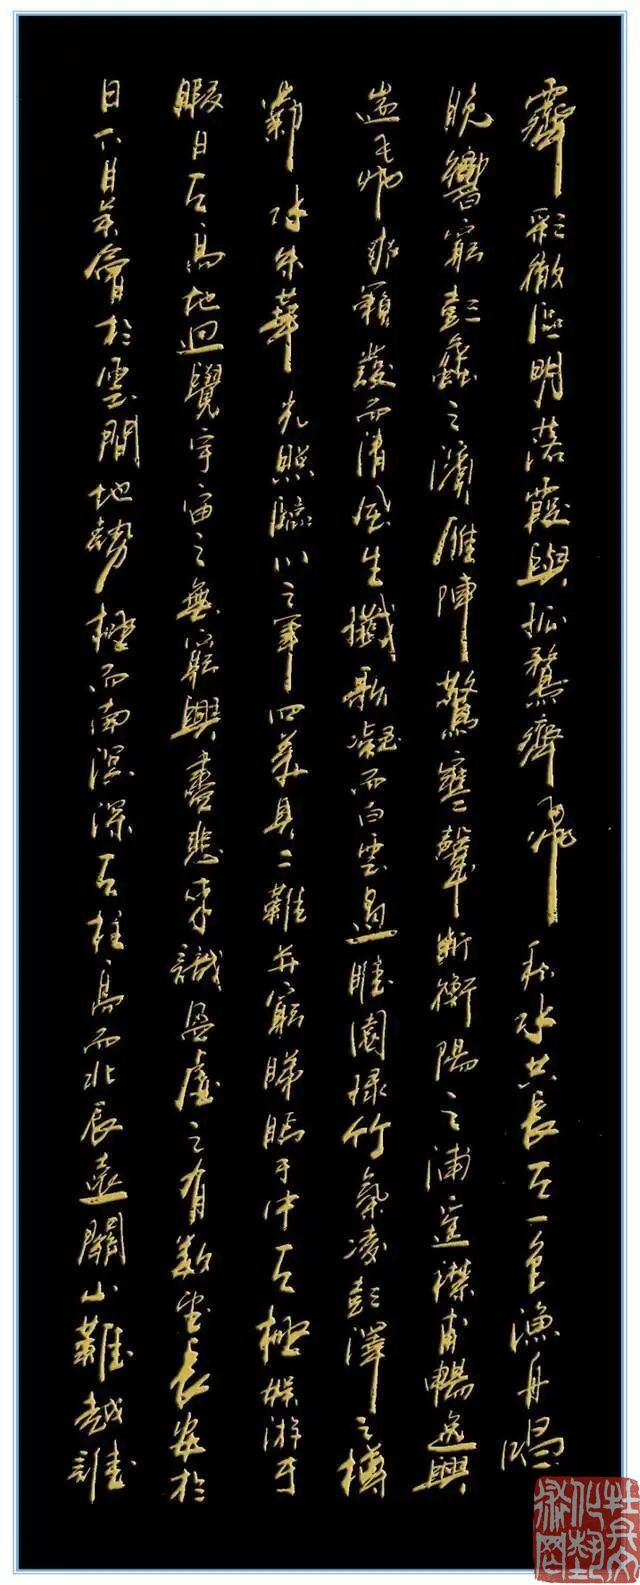 霽彩徹區明落霞與孤鶩齊飛秋水共長天一色漁舟唱
晚響窮彭蠡之濱雁陣驚寒聲斷衡陽之浦遙襟甫暢逸興
遄飛爽籟發而清風生纖歌凝而白雲遏睢園綠竹氣凌彭澤之樽
鄴水朱華光照臨川之筆四美具二難并窮睇眄于中天極娛游于
暇日天高地迥覺宇宙之無窮興盡悲來識盈虛之有數望長安於
日下目吳會於雲間地勢極而南溟深天柱高而北辰遠關山難越誰
牡丹文
化藝
術网